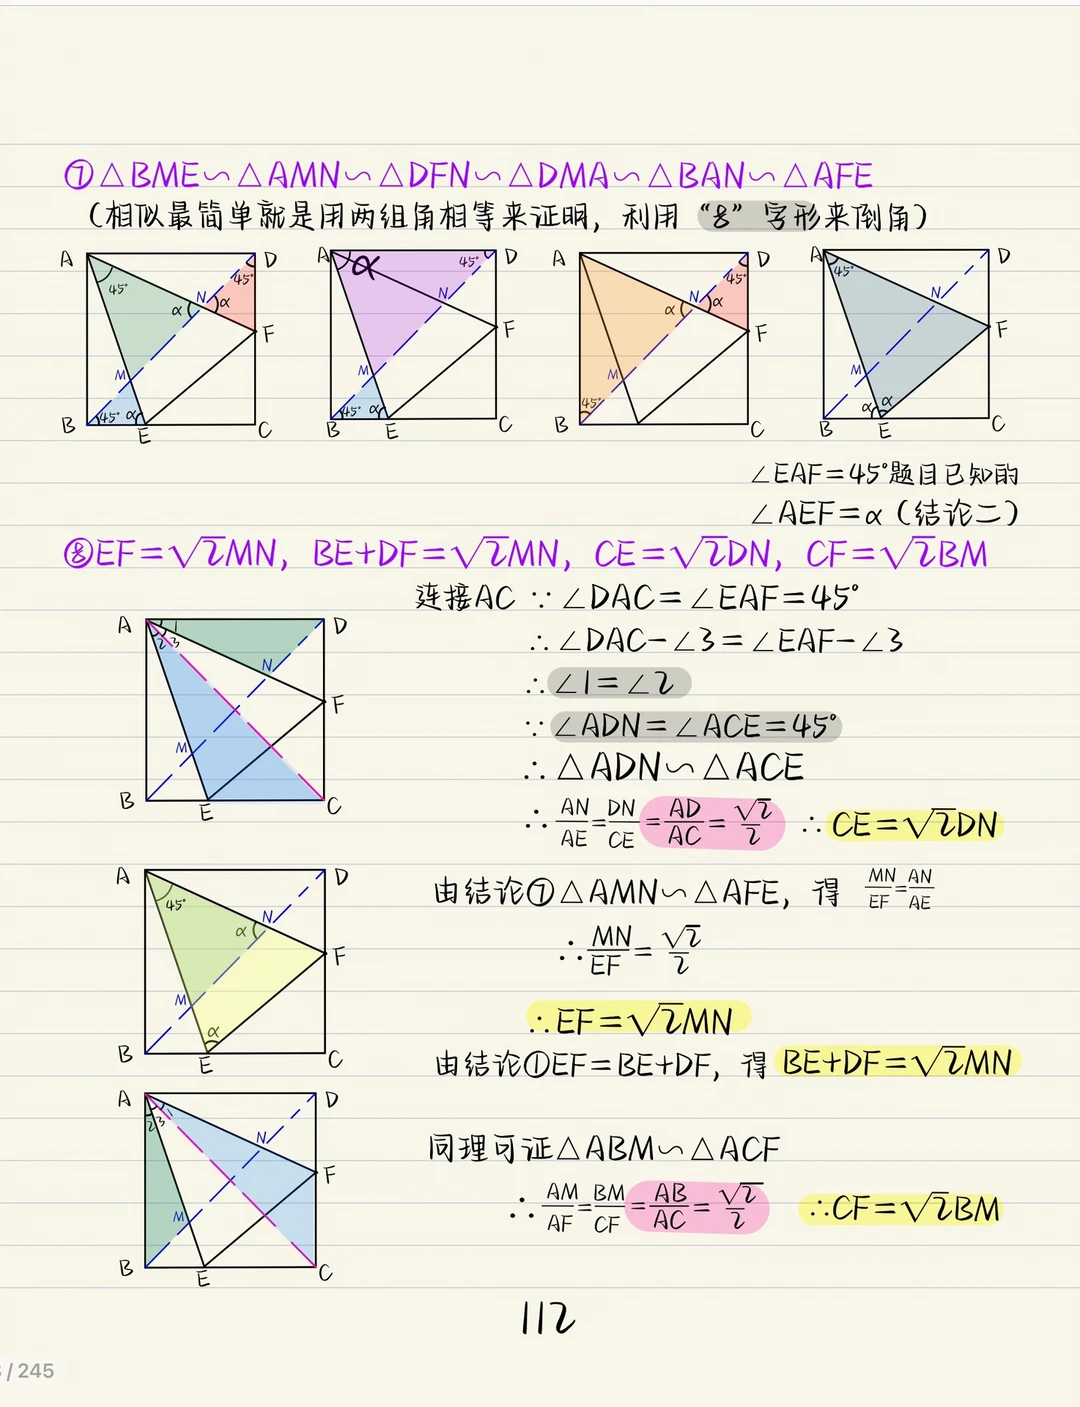 ⑦△BME∽△AMN∽△DFN∽△DMA∽△BAN∽△AFE
（相似最简单就是用两组角相等来证明，利用“8”字形来倒角）
A D 45° 45° N α α F M 45° α B E C
A α 45° D N F M 45° α B E C
A D 45° N α α F M 45° B C
A 45° D N F M α α B E C
∠EAF=45°题目已知的
∠AEF=α（结论二）
⑧EF=√2MN，BE+DF=√2MN，CE=√2DN，CF=√2BM
连接AC ∵∠DAC=∠EAF=45°
∴∠DAC-∠3=∠EAF-∠3
∴∠1=∠2
∵∠ADN=∠ACE=45°
∴△ADN∽△ACE
∴AN/AE=DN/CE=AD/AC=√2/2 ∴CE=√2DN
A 1 2 3 D N F M B E C
由结论⑦△AMN∽△AFE，得 MN/EF=AN/AE
∴MN/EF=√2/2
∴EF=√2MN
由结论①EF=BE+DF，得BE+DF=√2MN
A 45° D N α F M α B E C
同理可证△ABM∽△ACF
∴AM/AF=BM/CF=AB/AC=√2/2 ∴CF=√2BM
A 2 3 1 D N F M B E C
112
/245